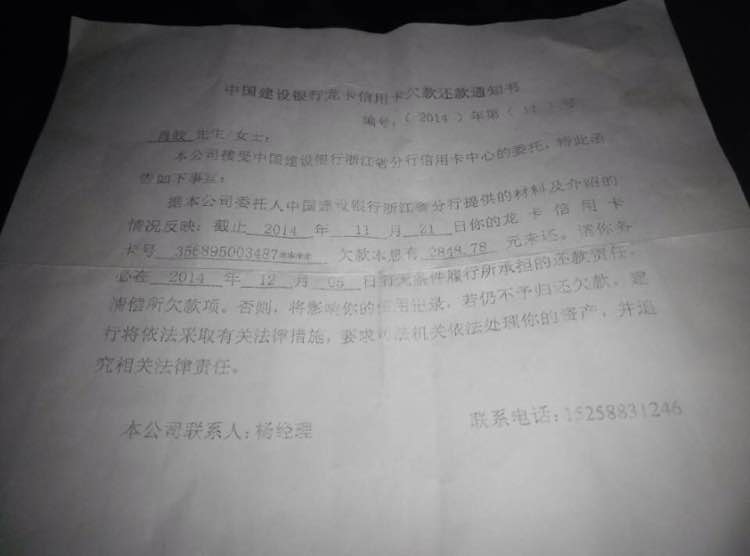 中国建设银行龙卡信用卡欠款还款通知书
编号:(2014)年第( )号
先生/女士:
本公司接受中国建设银行浙江省分行信用卡中心的委托,特此函
告如下事宜:
据本公司委托人中国建设银行浙江省分行提供的材料及介绍的
情况反映:截止 2014 年 11 月 21 日你的龙卡信用卡
卡号 356895003487**** 欠款本息有 2848.78 元未还。请你务
必在 2014 年 12 月 05 日前无条件履行所承担的还款责任,
清偿所欠款项。否则,将影响你的信用记录,若仍不予归还欠款,建
行将依法采取有关法律措施,要求司法机关依法处理你的资产,并追
究相关法律责任。
本公司联系人:杨经理
联系电话:15258831246